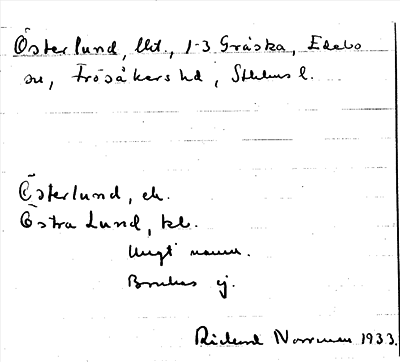 Österlund, lht., 1-3 Gråska, Edebo
sn, Frösåkers hd, Sthlms l.
Österlund, ek.
Östra Lund, kl.
Ungt namn.
Brukas ej.
Rickard Norrman 1933.